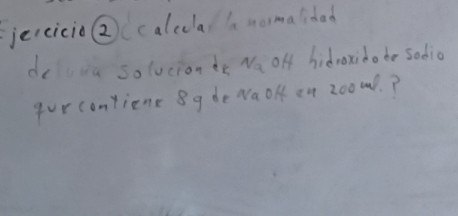 Ejercicio ② ¿Calcular la normalidad
de una solucion de NaOH hidroxido de sodio
que contiene 8g de NaOH en 200 ml.?